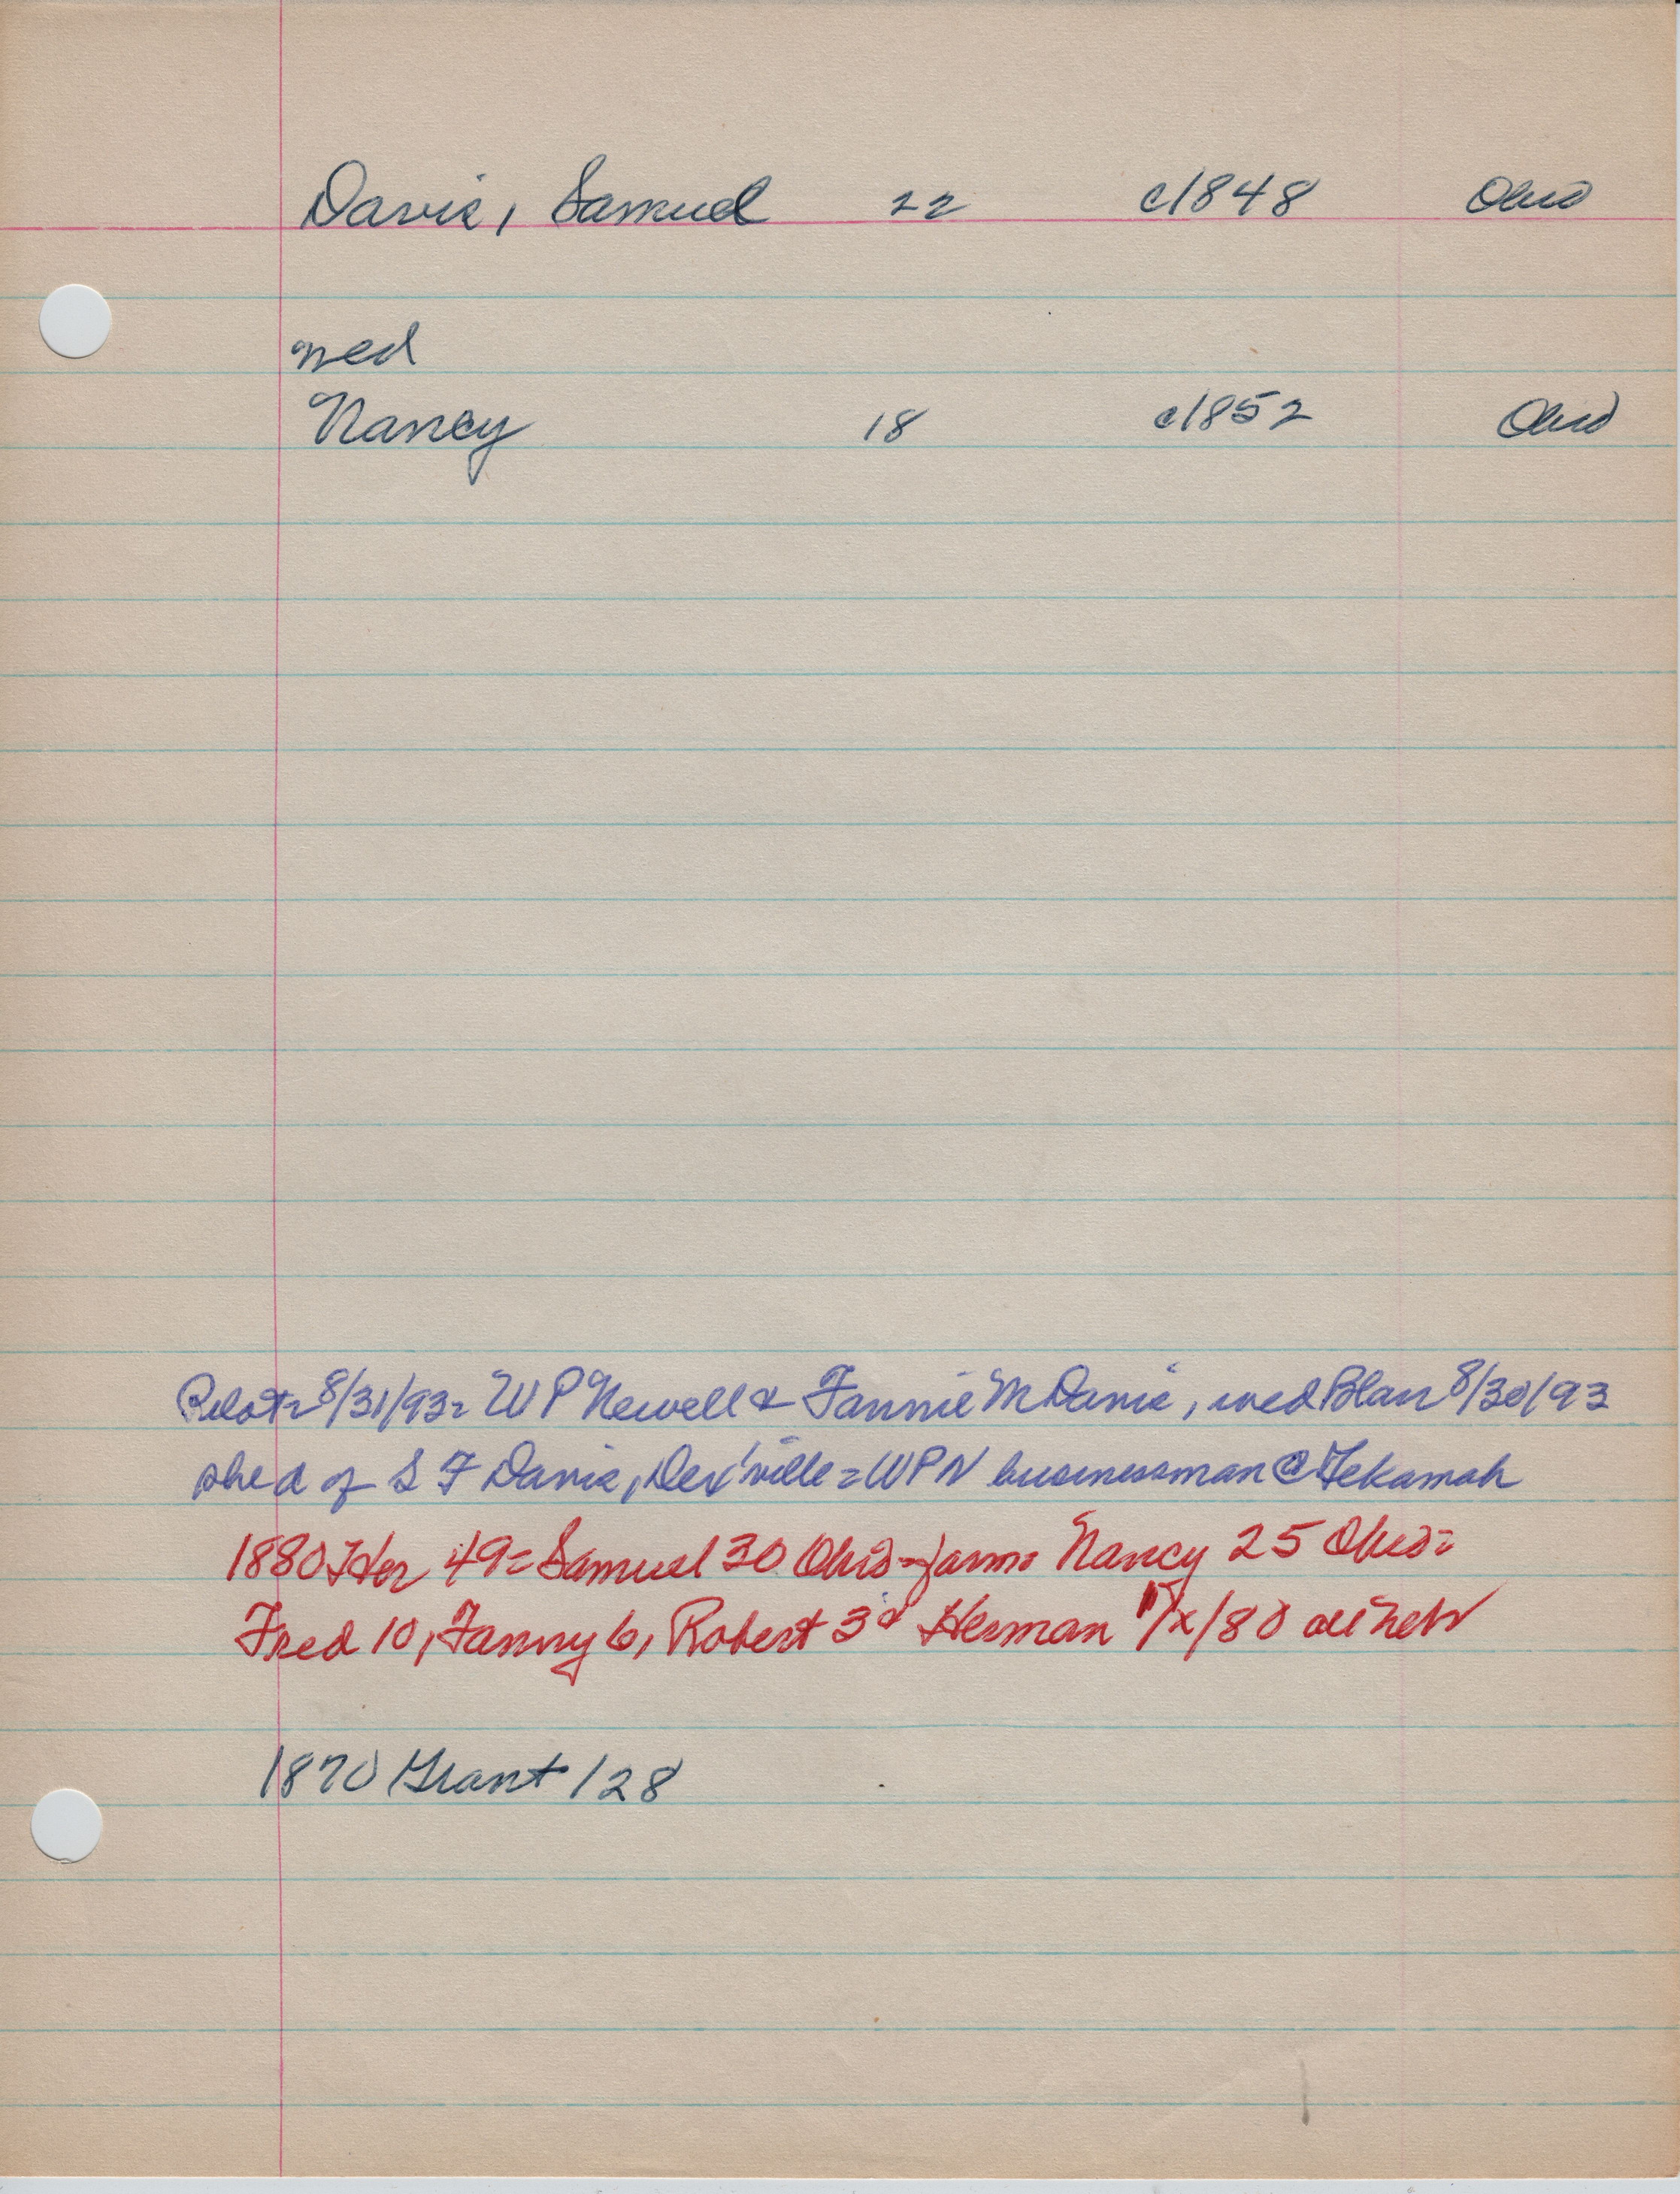 Davis, Samuel 22 c1848 Ohio
wed
Nancy 18 c1852 Ohio
Pilot= 8/31/93= W P Newell & Fannie M Davis, wed Blair 8/30/93
she d of S F Davis, Dex'ville = WPN businessman @ Tekamah
1880 Her 49= Samuel 30 Ohio=farm= Nancy 25 Ohio=
Fred 10, Fanny 6, Robert 3 & Herman /80 all Neb
1870 Grant 128